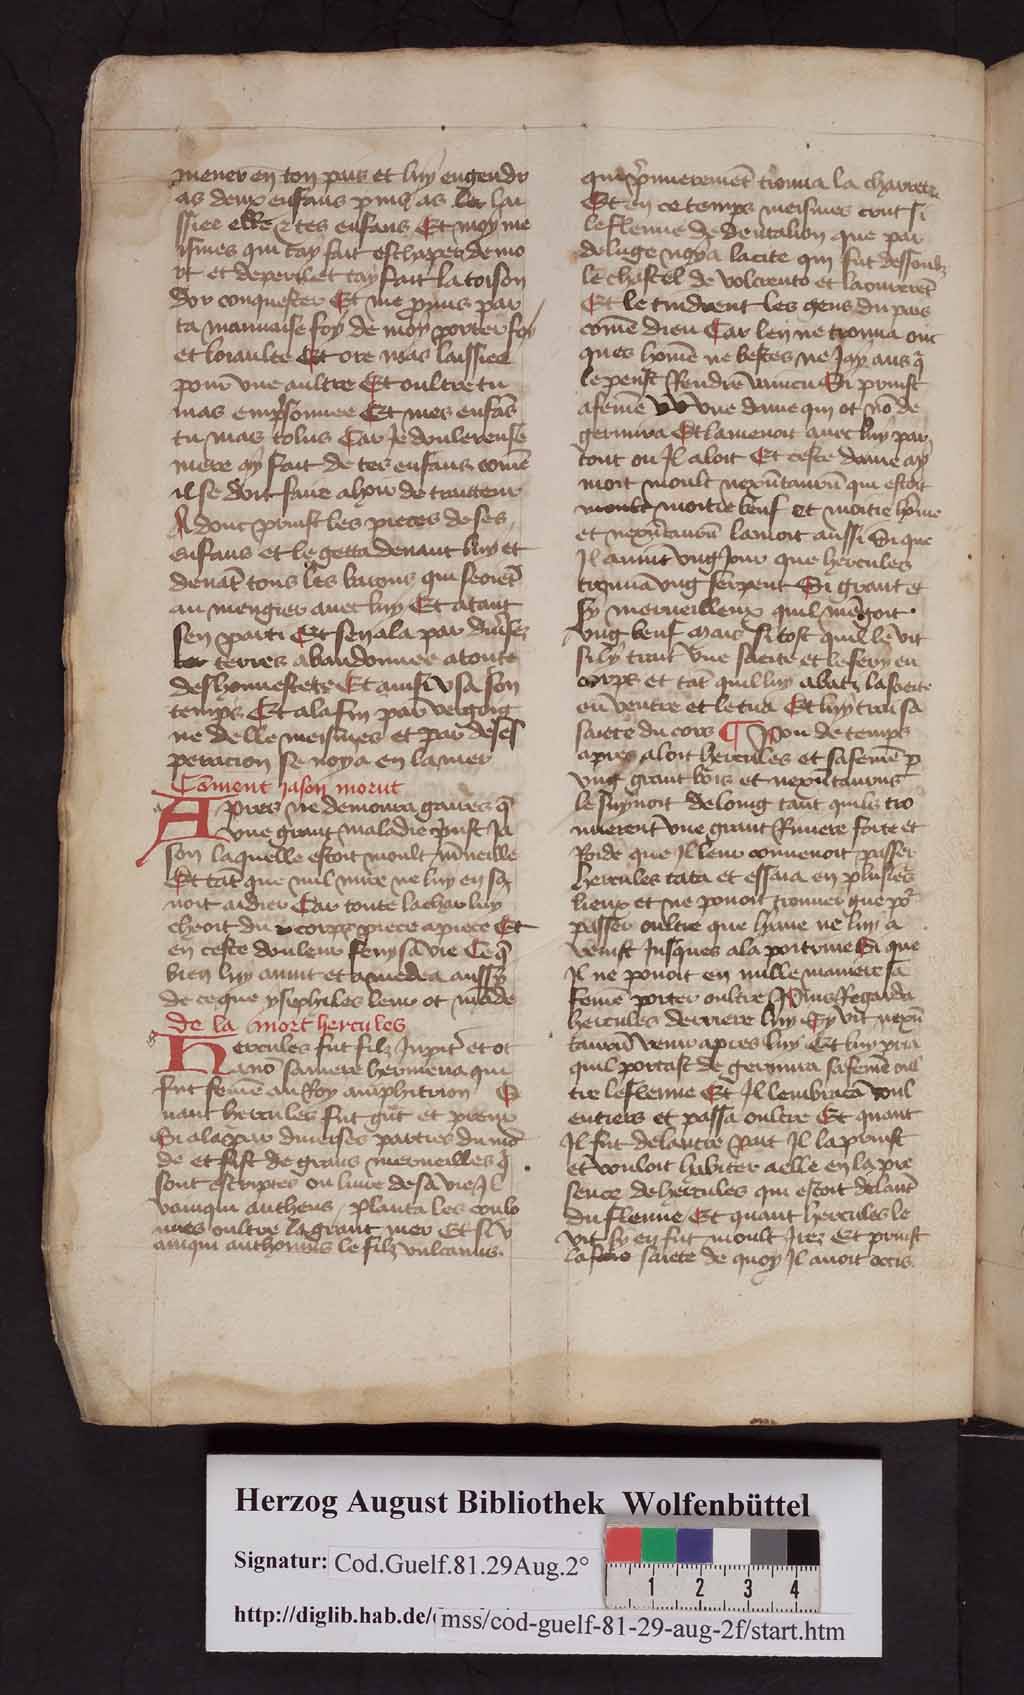 mener en ton pais et luy engendr
as deux enffans puis as les lai
ssiee elle & tes enfans Et moy me
ismes qui tay fait eschaper de mo
rt et de peril et tay fait la toison
dor conquester Et me promis par
ta mauvaise foy de moy porter foy
et loiaulte Et ore mas laissiee
pour une aultre Et oultre tu
mas emprisonnee Et mes enfãs
tu mas tolus Car Je doulereuse
mere ay fait de tes enfans comẽ
il se doit faire a hoir de traitteur
Adont prinst les pieces de ses
enfans et le getta devant luy et
devãt tous les barons qui seoiẽt
au mengier avec luy Et atant
sen parti Et sen ala par diverses
terres abandonnee a toute
deshonnestete Et ainsi usa son
temps Et a la fin par vergoig
ne delle meismes et par deses
peracion se noya en la mer
Coment Jason morut
Apres ne demoura gaires q̃
une grant maladie prinst Ja
son laquelle estoit moult
Et tãt que nul mire ne luy en sa
voit aidier Car toute la char luy
cheoit du corps piece a piece Et
en ceste douleur feny sa vie Ce q̃
bien luy avint et a medea aussy
de ce que ysiphiles leur ot mãde
De la mort hercules
Hercules fut filz Jupiter et ot
a nõ sa mere hermena qui
fut femẽ au Roy amphitrion Q
uant hercules fut grãt et preux
Si ala par diverses parties du mõ
de et fist de grans merveilles q̃
sont escriptes ou livre de sa vie Il
vainqui antheus Planta les coulo
nnes oultre la grant mer Et si v
ainqui anthonius le filz vulcanus
qui premierement trouva la charrete
Et en ce temps meismes
le fleuve de deucalion que par
deluge noya la cite qui fut dessoubz
le chastel de volcento et laouverẽt
Et le tindrent les gens du pais
comẽ dieu Car len ne trouva onc
ques homẽ ne bestes ne Jayans q̃
le penst Rendre vaincu Si prinst
a femẽ une dame qui ot nõ de
germira Et la menoit avec luy par
tout ou Il aloit Et ceste dame ay
moit moult nexũtaurũ qui estoit
moitie beuf et moitie hõme
et nexũtaurũ lamoit aussi Si que
Il avint ung Jour que hercules
trouva ung serpent Si grant et
sy merveilleux quil mẽgoit
ung beuf mais si tost quil le vit
si ly trait une saiete et le fery en
corps et tãt quil luy abati la saiete
ou ventre et le tua Et luy trai sa
saiete du cors ¶ Pou de temps
apres aloit hercules et sa femẽ p
ung grant bois et nexũtaurus
le suyvoit de loing tant quilz tro
uverent une grant Riviere forte et
Roide que Il leur convenoit passer
hercules tata et essaia en plusieurs
lieux et ne pouoit trouver gue pour
passer oultre que leaue ne luy a
venist Jusques a la poitrine Si que
Il ne pouoit en nulle maniere sa
femẽ porter oultre Puis Regarda
hercules derriere luy Sy vit nexũ
taurũ venir apres luy Et luy pria
quil portast degermira sa femẽ oul
tre le fleuve Et Il lembraca voul
entiers et passa oultre Et quant
Il fut delautre part Il la prinst
et vouloit habiter a elle en la pre
sence de hercules qui estoit dela
du fleuve Et quant hercules le
vit sy en fut moult Irez Et prinst
la saiete de quoy Il avoit occis
Herzog August Bibliothek Wolfenbüttel
Signatur: Cod.Guelf.81.29Aug.2°
1 2 3 4
http://diglib.hab.de/ mss/cod-guelf-81-29-aug-2f/start.htm